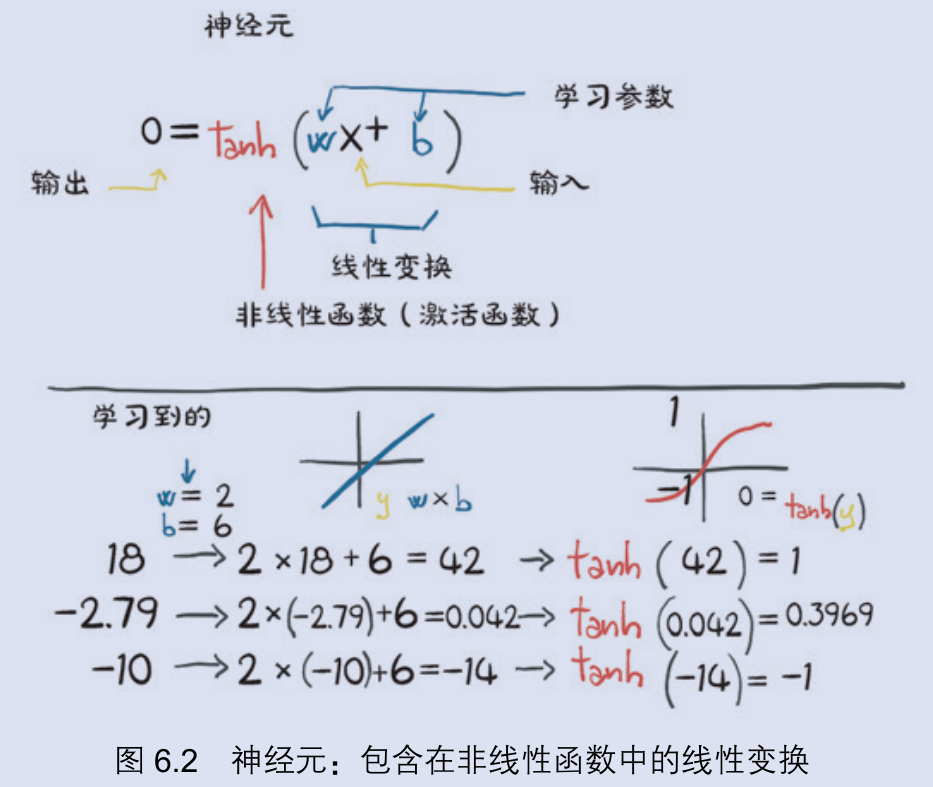 神经元
学习参数
o = tanh (wx + b)
输出
输入
线性变换
非线性函数（激活函数）
学习到的
w = 2
b = 6
y w × b
1
-1
o = tanh(y)
18 → 2 × 18 + 6 = 42 → tanh ( 42 ) = 1
-2.79 → 2 × (-2.79) + 6 = 0.042 → tanh (0.042) = 0.3969
-10 → 2 × (-10) + 6 = -14 → tanh (-14) = -1
图 6.2 神经元：包含在非线性函数中的线性变换